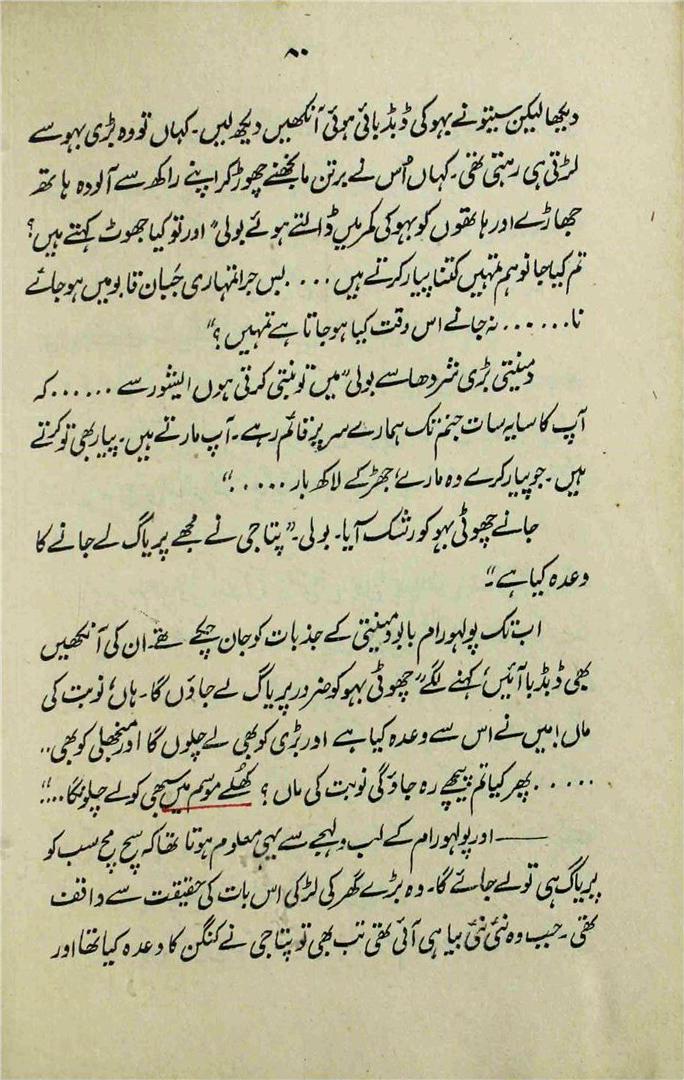 ۸۰
دیکھا لیکن سیتو نے بہو کی ڈبڈبائی ہوئی آنکھیں دیکھ لیں۔ کہاں تو وہ بڑی بہو سے
لڑتی ہی رہتی تھی۔ کہاں اُس نے برتن مانجھنے چھوڑ کر اپنے راکھ سے آلودہ ہاتھ
جھاڑے اور ہاتھوں کو بہو کی کمر میں ڈالتے ہوئے بولی " اور تو کیا جھوٹ کہتے ہیں؟
تم کیا جانو ہم تمہیں کتنا پیار کرتے ہیں .... بس جرا تمہاری جُبان قابو میں ہو جائے
نا...... نہ جانے اس وقت کیا ہو جاتا ہے تمہیں ؟"
دمینتی بڑی شردھا سے بولی "میں تو بنتی کرتی ہوں ایشور سے ...... کہ
آپ کا سایہ سات جنم تک ہمارے سر پر قائم رہے۔ آپ مارتے ہیں۔ پیار بھی تو کرتے
ہیں۔ جو پیار کرے وہ مارے، جھڑکے لاکھ بار ....."
جانے چھوٹی بہو کو رشک آیا۔ بولی۔ "پتا جی نے مجھے پریاگ لے جانے کا
وعدہ کیا ہے۔"
اب تک پولہو رام بابو دمینتی کے جذبات کو جان چکے تھے۔ ان کی آنکھیں
بھی ڈبڈبا آئیں، کہنے لگے "چھوٹی بہو کو ضرور پریاگ لے جاؤں گا۔ ہاں، نوبت کی
ماں! میں نے اس سے وعدہ کیا ہے اور بڑی کو بھی لے چلوں گا اور منجھلی کو بھی..
..... پھر کیا تم پیچھے رہ جاؤ گی نوبت کی ماں ؟ کھلے موسم میں سبھی کو لے چلونگا...."
—— اور پولہو رام کے لب و لہجے سے یہی معلوم ہوتا تھا کہ سچ مچ سب کو
پریاگ ہی تو لے جائے گا۔ وہ بڑے گھر کی لڑکی اس بات کی حقیقت سے واقف
تھی۔ جب وہ نئی نئی بیاہی آئی تھی تب بھی تو پتا جی نے کنگن کا وعدہ کیا تھا اور